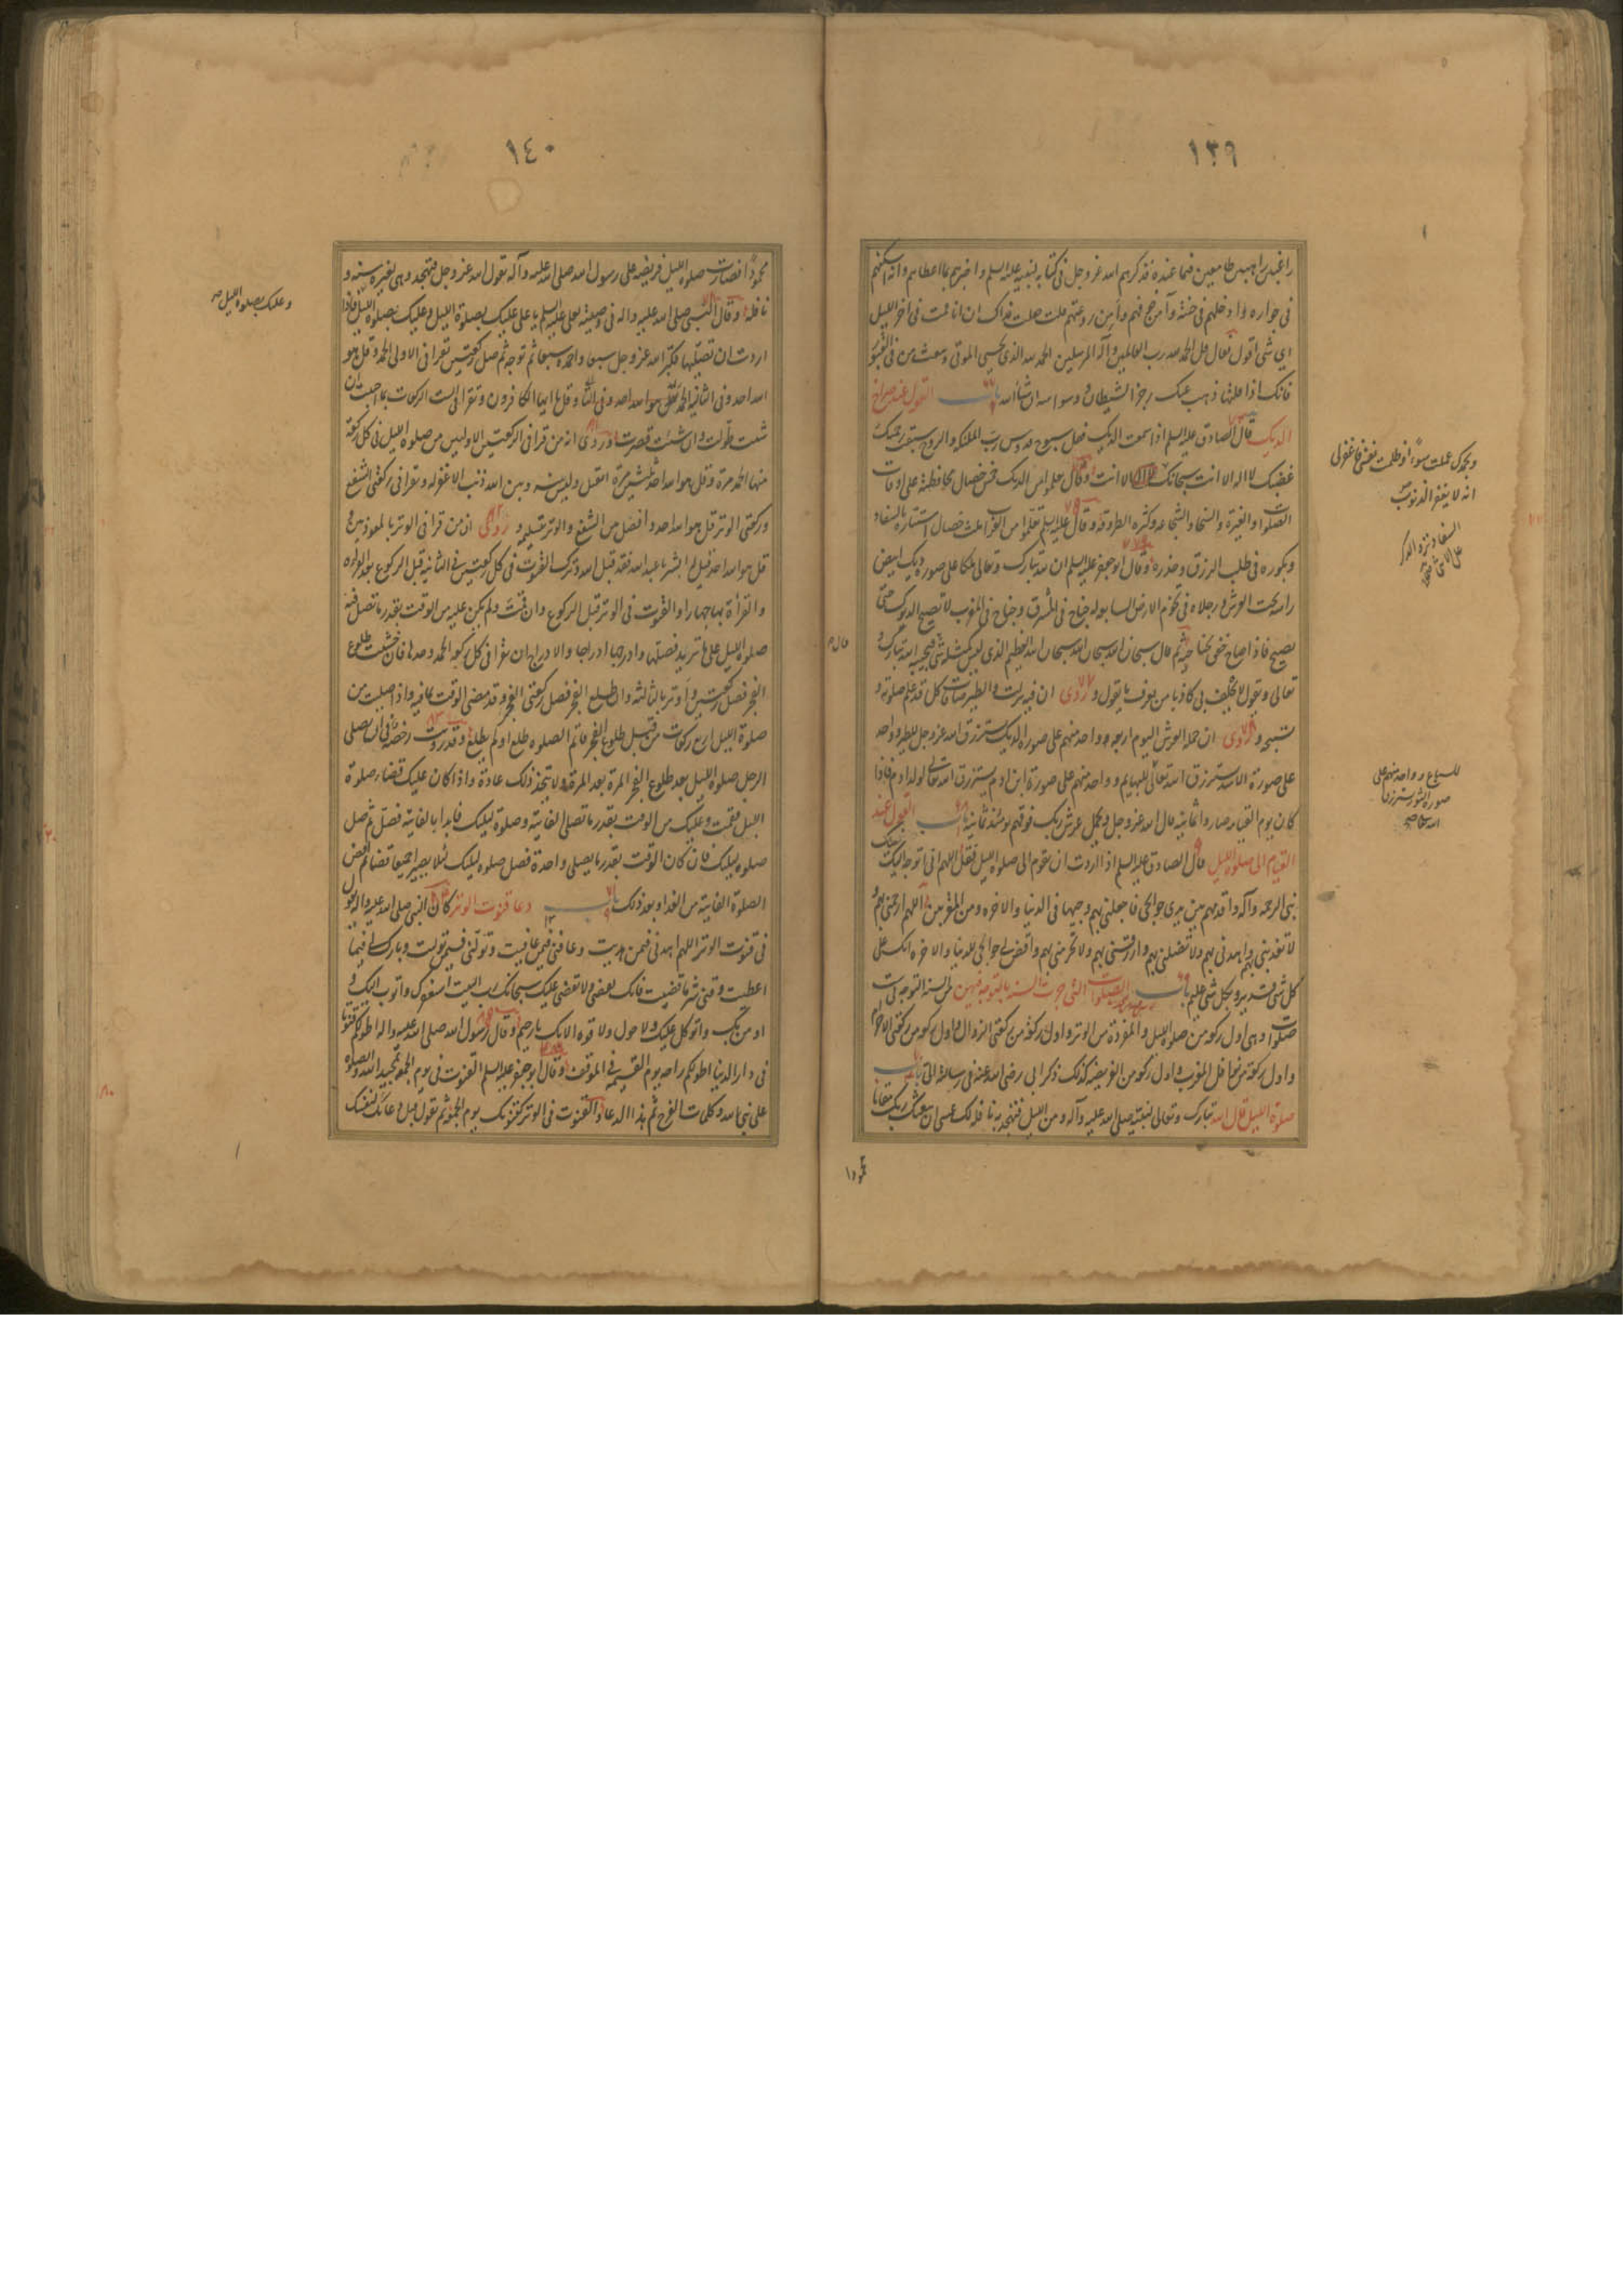 ١٣٩
راغبين راهبين طامعين فيما عنده فذكرهم الله عز وجل في كتابه لنبيه عليه السلم واخبرهم بما اعطاهم وانه اسكنهم
في جواره وادخلهم في جنته وآمن خوفهم وآمن روعتهم قلت جعلت فداك ان انا قمت في آخر الليل
اي شئ اقول فقال قل الحمد لله رب العالمين وآله المرسلين الحمد لله الذي يحيي الموتى ويبعث من في القبور
فانك اذا قلتها ذهب عنك رجز الشيطان ووسواسه ان شاء الله باب القول عند صراخ
الديك قال الصادق عليه السلم اذا سمعت الديك فقل سبوح قدوس رب الملئكة والروح سبقت رحمتك
غضبك لا اله الا انت سبحانك لا اله الا انت وقال تعلموا من الديك خمس خصال محافظته على اوقات
الصلوات والغيرة والسخاء والشجاعة وكثرة الطروقة وقال عليه السلم تعلموا من الغراب ثلث خصال استتاره بالسفاد
وبكوره في طلب الرزق وحذره وقال ابو جعفر عليه السلم ان لله تبارك وتعالى ملكا على صورة ديك ابيض
راسه تحت العرش ورجلاه في تخوم الارض السابعة له جناح في المشرق وجناح في المغرب لا تصيح الديوك حتى
يصيح فاذا صاح خفق بجناحيه ثم قال سبحان الله سبحان الله سبحان الله العظيم الذي ليس كمثله شئ فيجيبه الله تبارك و
تعالى ويقول لا يحلف بي كاذبا من يعرف ما يقول وروى ان فيه نزلت والطير صافات كل قد علم صلوته و
تسبيحه وروى ان حملة العرش اليوم اربعة واحد منهم على صورة الديك يسترزق الله عز وجل للطير وواحد
على صورة الاسد يسترزق الله تعالى للبهايم وواحد منهم على صورة ابن ادم يسترزق الله تعالى لولد ادم فاذا
كان يوم القيامة صاروا ثمانية قال الله عز وجل ويحمل عرش ربك فوقهم يومئذ ثمانية باب القول عند
القيام الى صلوة الليل قال الصادق عليه السلم اذا اردت ان تقوم الى صلوة الليل فقل اللهم اني اتوجه اليك
بنبيك نبي الرحمة وآله واقدمهم بين يدي حوائجي فاجعلني بهم وجيها في الدنيا والاخرة ومن المقربين اللهم ارحمني بهم و
لا تعذبني بهم واهدني بهم ولا تضلني بهم وارزقني بهم ولا تحرمني بهم واقض لي حوائجي للدنيا والاخرة انك على
كل شئ قدير وبكل شئ عليم باب الصلوات التي جرت السنة بالتوجه فيهن من السنة التوجه في ست
صلوات وهي اول ركعة من صلوة الليل والمفردة من الوتر واول ركعة من ركعتي الزوال واول ركعة من ركعتي الاحرام
واول ركعة من نوافل المغرب واول ركعة من الفريضة كذلك ذكر ابي رضي الله عنه في رسالته الي باب
صلوة الليل قال الله تبارك وتعالى لنبيه صلى الله عليه وآله ومن الليل فتهجد به نافلة لك عسى ان يبعثك ربك مقاما
محمودا
وبحمدك عملت سوءا وظلمت نفسي فاغفر لي
انه لا يغفر الذنوب
السفاد نزو الذكر
على الانثى
للسباع وواحد منهم على
صورة الثور يسترزق
الله تعالى
قال
١٤٠
محمودا فصارت صلوة الليل فريضة على رسول الله صلى الله عليه وآله بقول الله عز وجل فتهجد وهي لغيره سنة و
نافلة وقال النبي صلى الله عليه واله في وصيته لعلي عليه السلم يا علي عليك بصلوة الليل وعليك بصلوة الليل فاذا
اردت ان تصليها فكبر الله عز وجل سبعا واحمده سبعا ثم توجه ثم صل ركعتين تقرا في الاولى الحمد وقل هو
الله احد وفي الثانية الحمد وقل هو الله احد وقل يا ايها الكافرون وتقرا في الست الركعات بما احببت ان
شئت طولت وان شئت قصرت وروى انه من قرا في الركعتين الاوليين من صلوة الليل في كل ركعة
منها الحمد مرة وقل هو الله احد ثلثين مرة انفتل وليس بينه وبين الله ذنب الا غفر له وتقرا في ركعتي الشفع
وركعتي الوتر قل هو الله احد وافصل بين الشفع والوتر بتسليمة وروى ان من قرا في الوتر بالمعوذتين و
قل هو الله احد قيل له ابشر يا عبد الله فقد قبل الله وترك القنوت في كل ركعتين في الثانية قبل الركوع بعد القراءة
والقرأة بها جهارا والقنوت في الوتر قبل الركوع وان قمت ولم يكن عليك من الوقت بقدر ما تصلي فيه
صلوة الليل على ما تريد فصلها وادرجها ادراجا والادراج ان تقرا في كل ركعة الحمد وحدها فان خشيت طلوع
الفجر فصل ركعتين واوتر بالثالثة وان طلع الفجر فصل ركعتي الفجر وقد مضى الوقت بما فيه واذا صليت من
صلوة الليل اربع ركعات من قبل طلوع الفجر فاتم الصلوة طلع او لم يطلع وقد رويت رخصة في ان يصلي
الرجل صلوة الليل بعد طلوع الفجر المرة بعد المرة ولا يتخذ ذلك عادة واذا كان عليك قضاء صلوة
الليل فقمت وعليك من الوقت بقدر ما تصلي الفايتة وصلوة ليلتك فابدا بالفايتة فصل ثم صل
صلوة ليلتك فان كان الوقت بقدر ما يصلي واحدة فصل صلوة ليلتك لئلا يصيرا جميعا قضاء ثم اقض
الصلوة الفايتة من الغد او بعد ذلك باب دعاء قنوت الوتر كان النبي صلى الله عليه واله يقول
في قنوت الوتر اللهم اهدني فيمن هديت وعافني فيمن عافيت وتولني فيمن توليت وبارك لي فيما
اعطيت وقني شر ما قضيت فانك تقضي ولا يقضى عليك سبحانك رب البيت استغفرك واتوب اليك و
اومن بك واتوكل عليك ولا حول ولا قوة الا بك يا رحيم وقال رسول الله صلى الله عليه واله اطولكم قنوتا
في دار الدنيا اطولكم راحة يوم القيمة في الموقف وقال ابو جعفر عليه السلم القنوت في يوم الجمعة تمجيد الله والصلوة
على نبي الله وكلمات الفرج ثم هذا الدعاء والقنوت في الوتر كقنوتك يوم الجمعة ثم تقول قبل دعائك لنفسك
وعليك بصلوة الليل